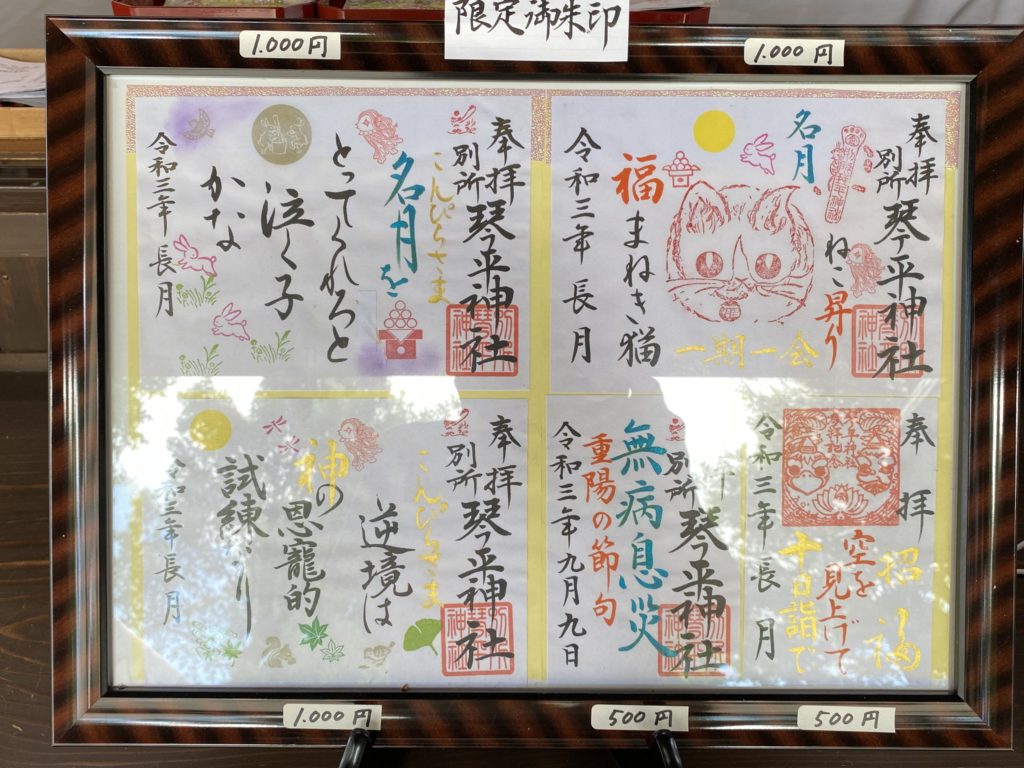 限定御朱印
1.000円
1.000円
奉拝
別所
琴平神社
名月
ねこ昇り
福まねき猫
一期一会
令和三年 長月
奉拝
別所
琴平神社
こんぴらさま
名月を
とってくれろと
泣く子
かな
令和三年 長月
奉拝
招福
空を
見上げて
十日詣で
令和三年 長月
別所
琴平神社
無病息災
重陽の節句
令和三年九月九日
奉拝
別所
琴平神社
こんぴらさま
逆境は
神の恩寵的
試練なり
令和三年長月
1.000円
500円
500円